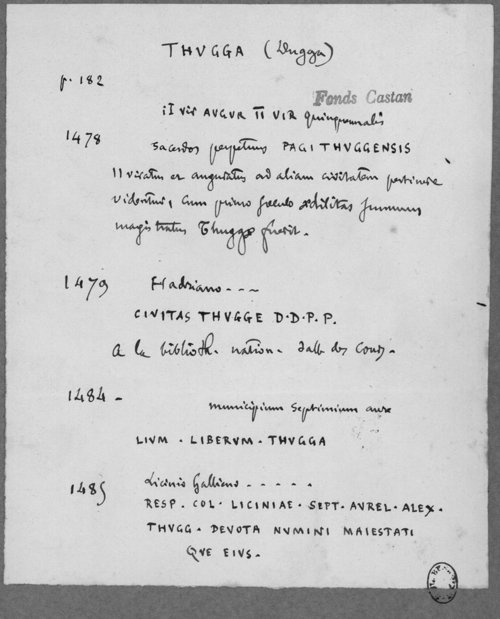 THVGGA (Dugga)
p. 182
Fonds Castan
II vir AVGVR II VIR quinquennalis
1478 sacerdos perpetuus PAGI THVGGENSIS
II viratus et auguratus ad aliam civitatem pertinere
videntur, cum primo saeculo aedilitas summus
magistratus Thuggae fuerit.
1479 Hadriano - - -
CIVITAS THVGGE D.D.P.P.
A la biblioth. nation. salle des Conf.
1484 - municipium septimium aure
LIVM . LIBERVM . THVGGA
1485 Licinio Gallieno - - - - -
RESP. COL. LICINIAE . SEPT. AVREL. ALEX.
THVGG. DEVOTA NVMINI MAIESTATI
QVE EIVS.